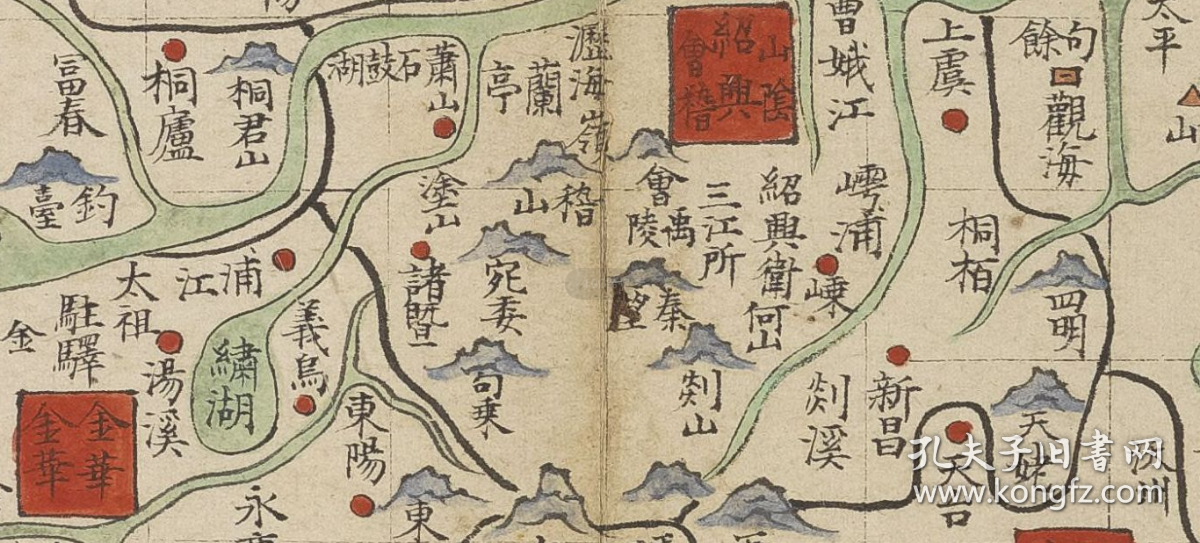 太平
句餘
觀海
山
上虞
曹娥江
山陰
紹興
會稽
瀝海嶺
蘭亭
蕭山
石鼓湖
桐君山
桐廬
富春
釣臺
塗山
稽山
會
禹陵
三江所
紹興衛
何山
嶀浦
嵊
桐栢
四明
浦江
太祖
駐驛
金
諸暨
宛委
秦望
剡山
剡溪
新昌
天姥
天台
句乗
義烏
繡湖
湯溪
金華
金華
東陽
永
東
孔夫子旧书网
www.kongfz.com